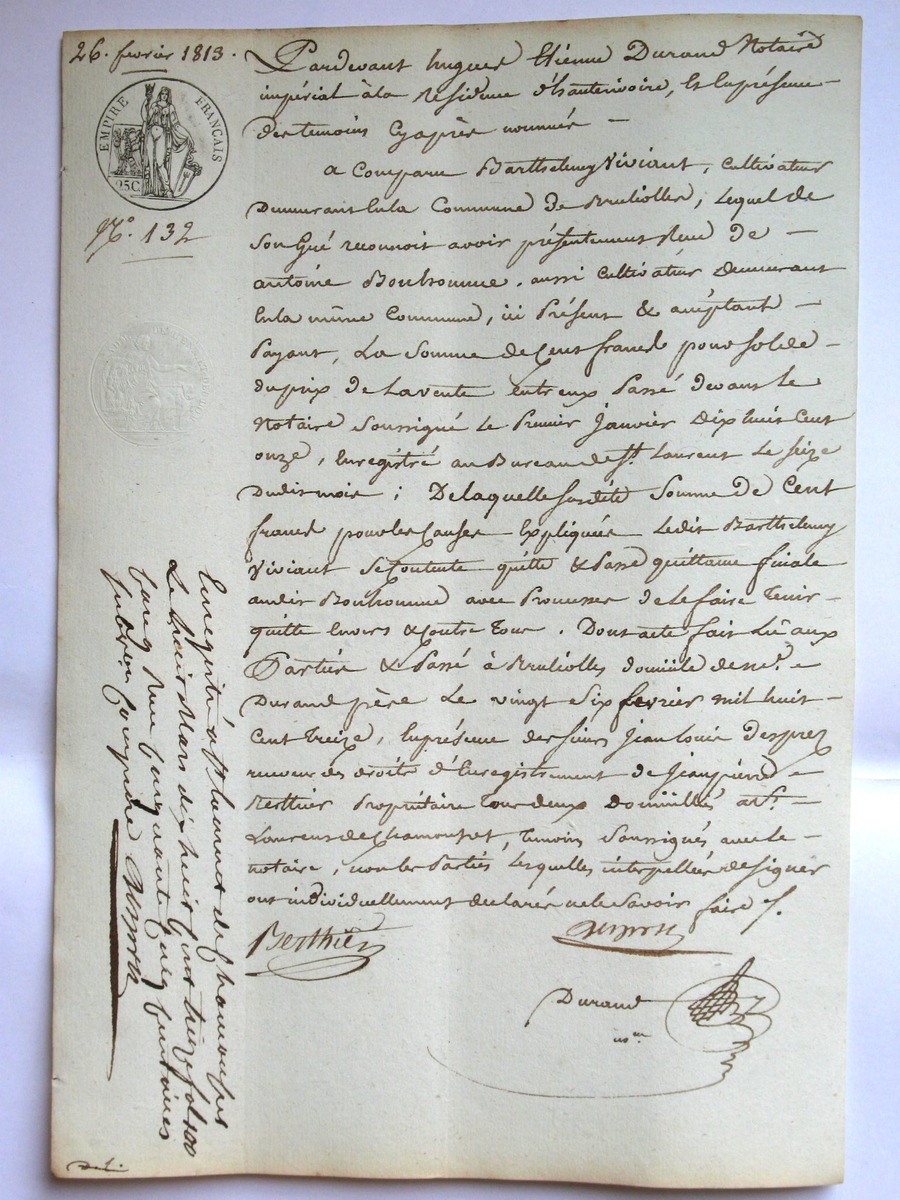 26. fevrier 1813.
EMPIRE FRANÇAIS
25C
N.° 132
Pardevant hugues Etienne Durand Notaire
impérial à la Residence d'hauterivoire, Et En présence
des temoins Cyaprès nommés
a Comparu Barthelemy Viviant, cultivateur
Demeurant En la Commune de Brulioles, lequel de
Son Gré reconnoit avoir présentement Recu de
antoine Bonhomme, aussi Cultivateur Demeurant
En la même Commune, ici Présent & acceptant
Payant, La Somme de Cent francs pour Solde
du prix de La vente entre eux Passé devant le
Notaire Soussigné Le Premier Janvier Dix huit Cent
onze, Enregistré au Bureau de St. Laurent Le Seize
Dudit mois ; De laquelle susdite Somme de Cent
francs pour les Causes Expliquées Ledit Barthelemy
Viviant Se Contente quitte & Passe quittance finale
audit Bonhomme avec Promesses de le faire Tenir
quitte Envers & Contre Tous. Dont acte fait Lu aux
Parties & Passé à Brulioles domicile de me.
Durand père Le vingt Six fevrier mil huit
Cent Treize, En présence des Sieurs Jean Louis Desprez
receveur des droits d'Enregistrement & Jean pierre
Berthier Propriétaire Tous deux Domiciliés à St.
Laurent de Chamousset, Temoins Soussignés avec le
notaire, non les Parties Lesquelles interpellées de Signer
ont individuellement declarés ne le Savoir faire /.
Berthier
Desprez
Durand
nre.
Enregistré à St Laurent de Chamousset
Le trois Mars dix huit Cent treize fol. 100
Cinquante Cinq Centimes
Subvention Comprise Desprez